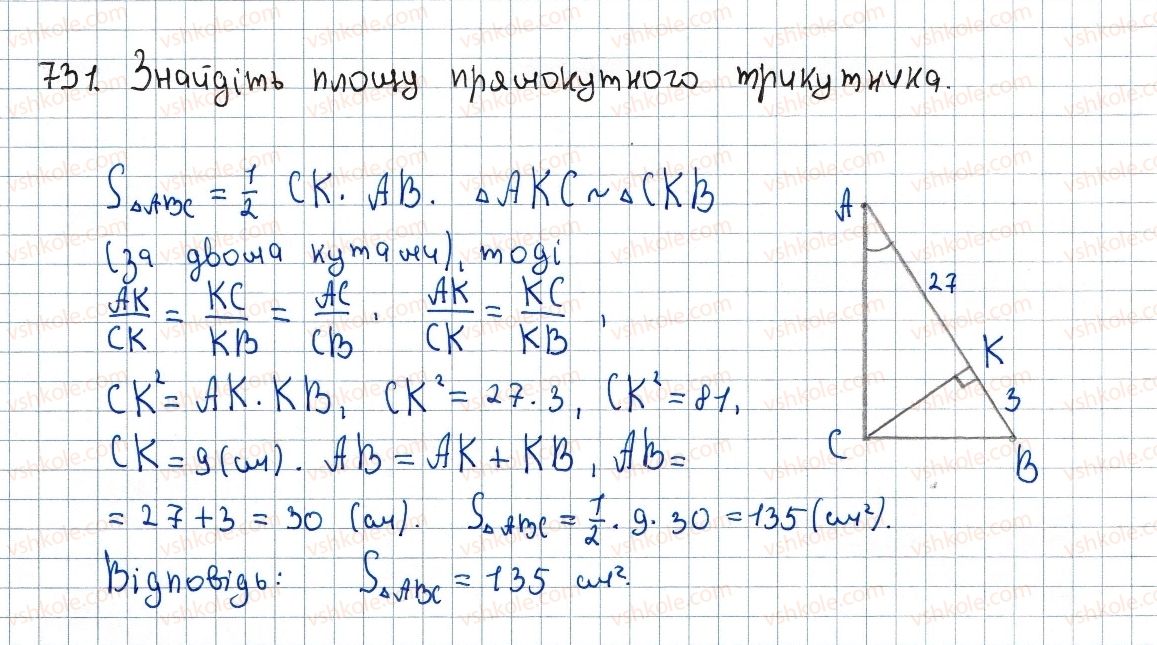 731. Знайдіть площу прямокутного трикутника.
S△ABC = 1/2 CK · AB. △AKC ~ △CKB
(за двома кутами), тоді
AK/CK = KC/KB = AC/CB. AK/CK = KC/KB,
CK² = AK · KB, CK² = 27 · 3, CK² = 81,
CK = 9 (см). AB = AK + KB, AB =
= 27 + 3 = 30 (см). S△ABC = 1/2 · 9 · 30 = 135 (см²).
Відповідь: S△ABC = 135 см².
A
27
K
3
C
B
vshkole.com